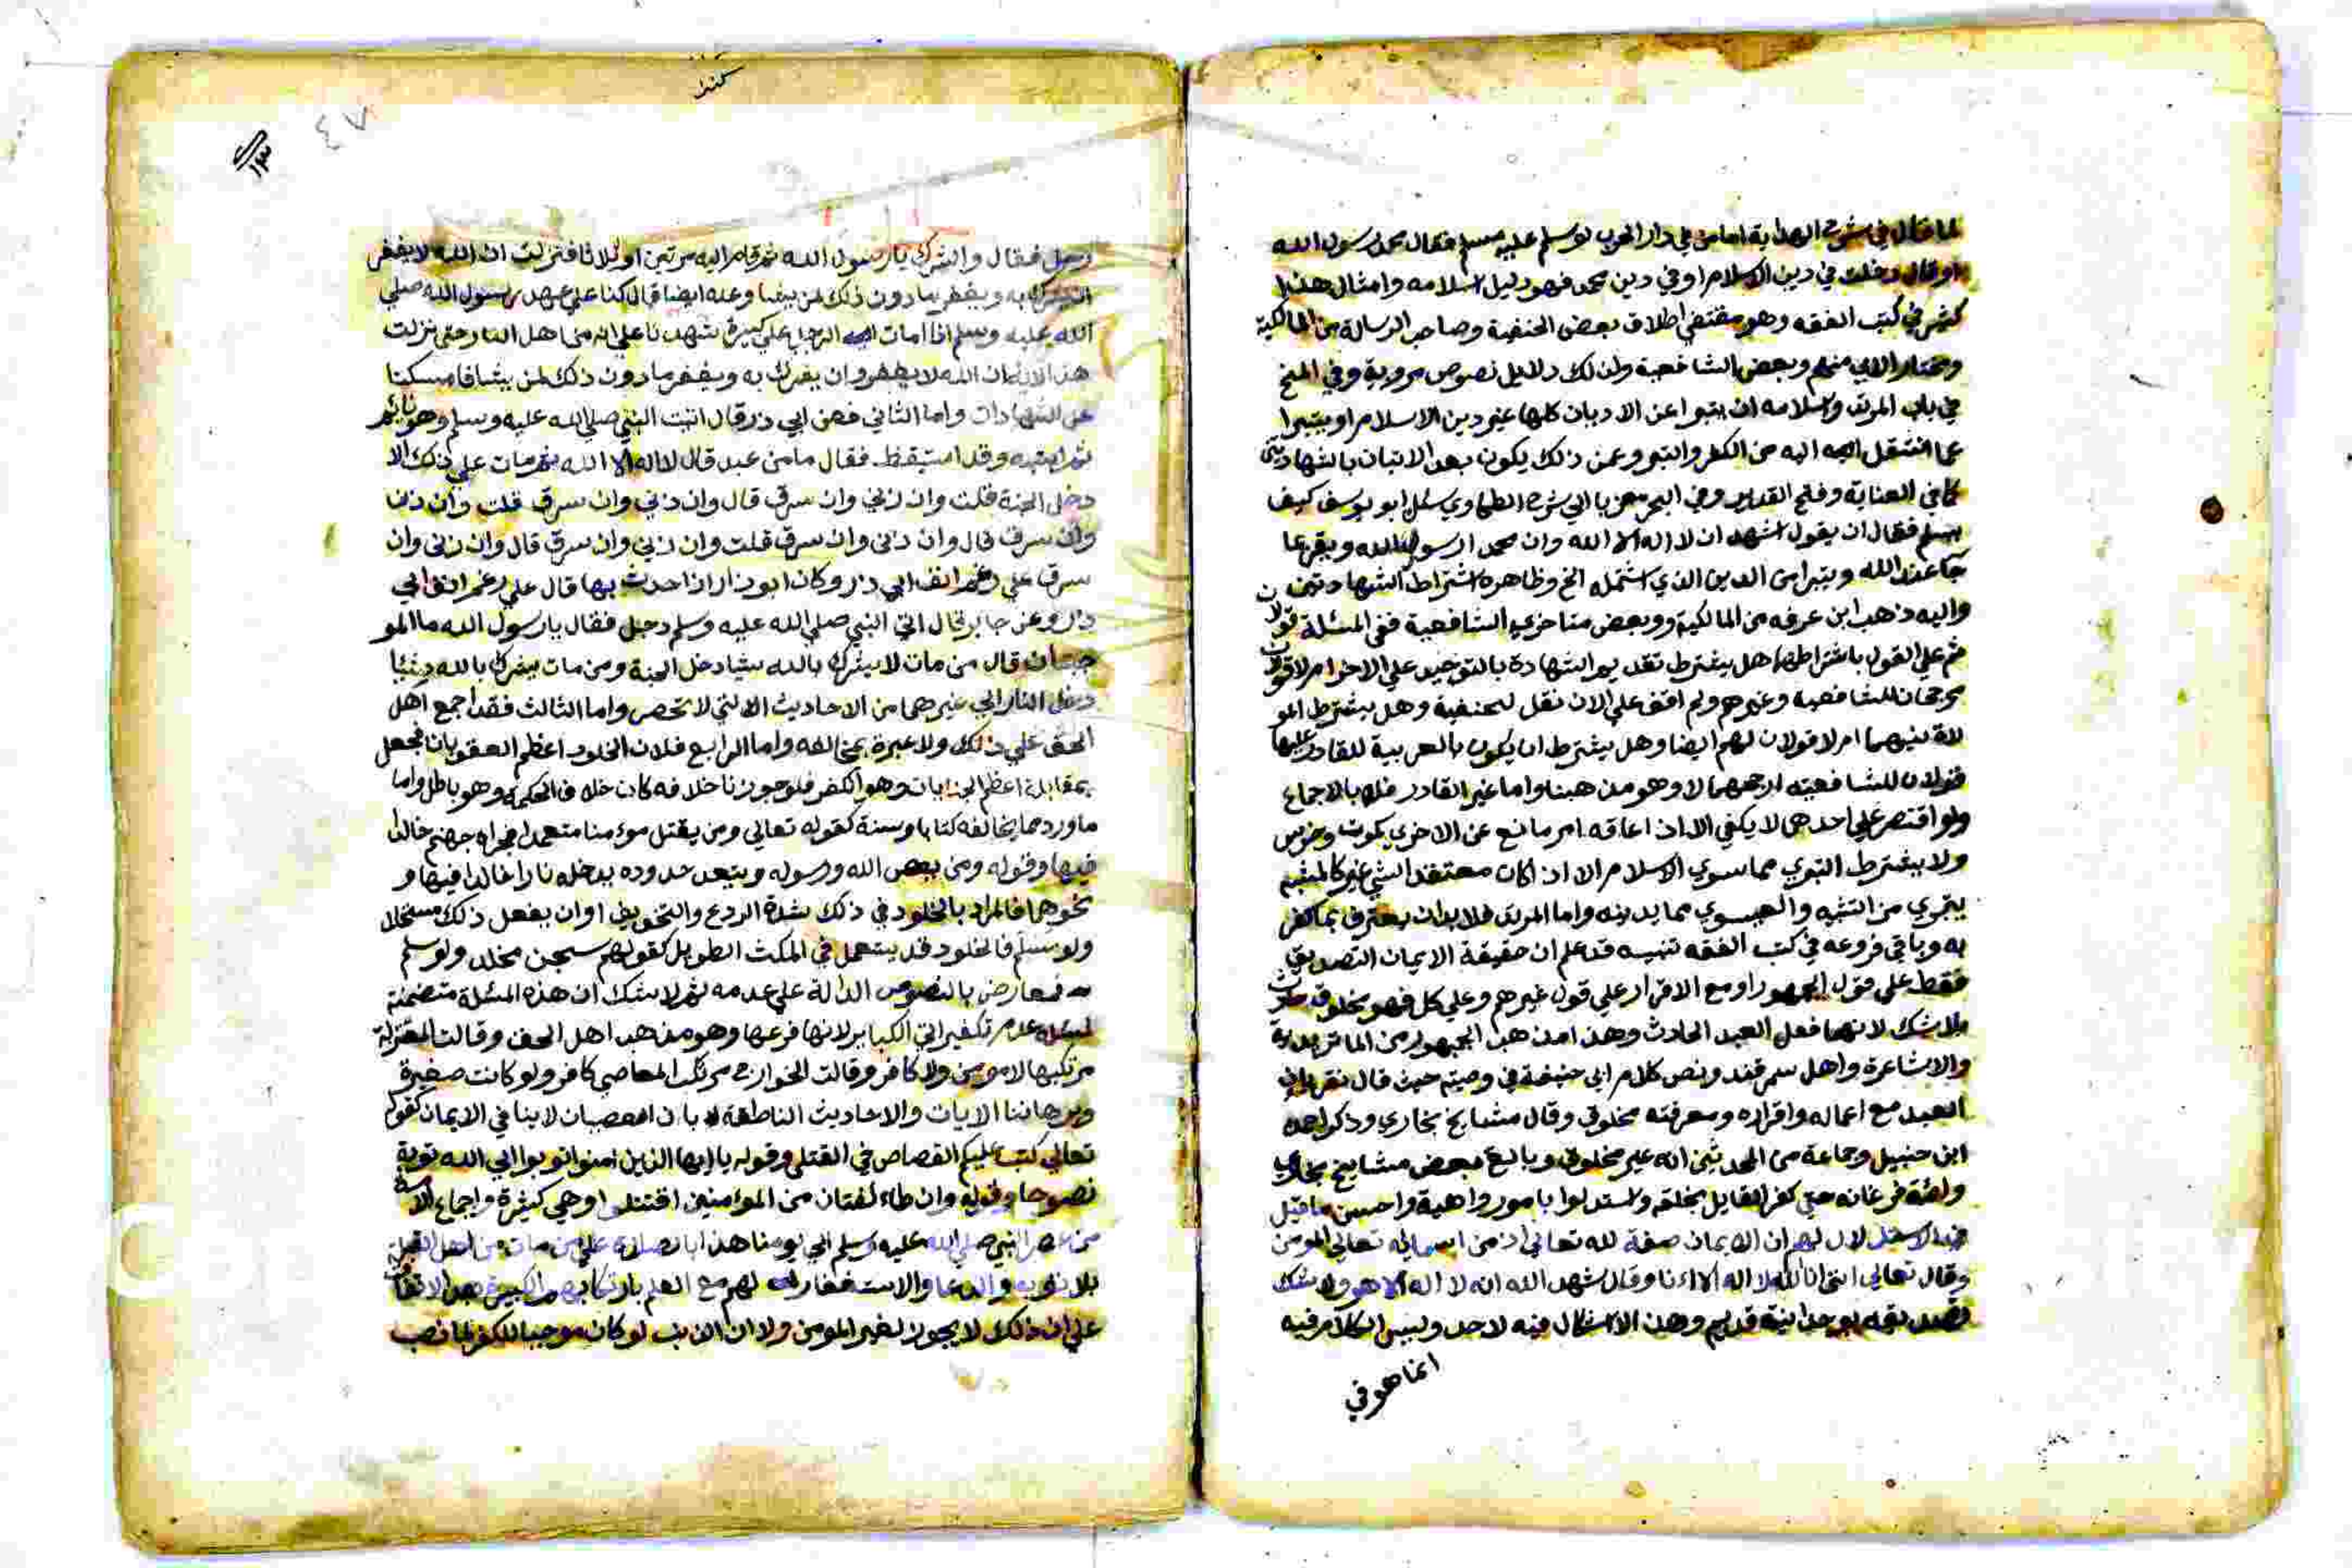 لما قال في شرح الهداية امام في دار الحرب لو سلم عليه مسلم فقال محمد رسول الله
او قال دخلت في دين الاسلام او في دين محمد فهو دليل اسلامه وامثال هذا
كثير في كتب الفقه وهو مقتضي اطلاق بعض الحنفية وصاحب الرسالة من المالكية
ومختار الابي منهم وبعض الشافعية ولذلك دلايل نصوص مروية وفي المنح
في باب المرتد واسلامه ان يتبرا عن الاديان كلها غير دين الاسلام او يتبرا
عما انتقل اليه من الكفر والتبري عن ذلك يكون بعد الاتيان بالشهادتين
كما في العناية وفتح القدير وفي البحر معزيا الي شرح الطحاوي سئل ابو يوسف كيف
يسلم فقال ان يقول اشهد ان لا اله الا الله وان محمدا رسول الله ويقر بما
جا عند الله ويتبرا من الدين الذي انتحله الخ وظاهره اشتراط الشهادتين
واليه ذهب ابن عرفه من المالكية وبعض متاخري الشافعية ففي المسئلة قولان
ثم علي القول باشتراطها هل يشترط تقديم الشهادة بالتوحيد علي الاخر ام لا قولان
مرجحان للشافعية وغيرهم ولم اقف علي الان نقل للحنفية وهل يشترط الموا
لاة بينهما ام لا قولان لهم ايضا وهل يشترط ان يكون بالعربية للقادر عليها
قولان للشافعيه ارجحهما لا وهو مذهبنا واما غير القادر فلا بالاجماع
ولو اقتصر علي احدهما لا يكفي الا اذا عاقه امر مانع عن الاخري كموت وخرس
ولا يشترط التبري مما سوي الاسلام الا اذا كان معتقدا لشي غيره كالمشبه
يتبري من التشبيه والعيسوي مما يدينه واما المرتد فلا بد ان يعترف بما كفر
به وباقي فروعه في كتب الفقه تنبيه قد علم ان حقيقة الايمان التصديق
فقط علي قول الجمهور او مع الاقرار علي قول غيرهم وعلي كل فهو مخلوق حادث
بلا شك لانهما فعل العبد الحادث وهذا مذهب الجمهور من الماتريدية
والاشاعرة واهل سمرقند ونص كلام ابي حنيفة في وصيته حيث قال نقر بان
العبد مع اعماله واقراره ومعرفته مخلوق وقال مشايخ بخاري وذكر احمد
ابن حنبل وجماعة من المحدثين انه غير مخلوق وبالغ بعض مشايخ بخاري
وائمة فرغانه حتي كفر القايل بخلقه واستدلوا بامور واهية واحسن ما قيل
في الاستدلال لهم ان الايمان صفة لله تعالي اذ من اسمائه تعالي المومن
وقال تعالي انني انا الله لا اله الا انا وقال شهد الله انه لا اله الا هو ولا شك
تصديقه بوحدانيته قديم وهذا لا اشكال فيه لاحد وليس الكلام فيه
انما هو في
٤٧
رجل فقال والشرك يا رسول الله ثم قام اليه مرتين او ثلاثا فنزلت ان الله لا يغفر
ان يشرك به ويغفر ما دون ذلك لمن يشا وعنه ايضا قال كنا علي عهد رسول الله صلي
الله عليه وسلم اذا مات الرجل علي كبيرة شهدنا علي انه من اهل النار حتي نزلت
هذه الاية ان الله لا يغفر ان يشرك به ويغفر ما دون ذلك لمن يشا فامسكنا
عن الشهادات واما الثاني فعن ابي ذر قال اتيت النبي صلي الله عليه وسلم وهو نائم
ثم اتيته وقد استيقظ فقال ما من عبد قال لا اله الا الله ثم مات علي ذلك الا
دخل الجنة قلت وان زني وان سرق قال وان زني وان سرق قلت وان زنا
وان سرق قال وان زني وان سرق قلت وان زني وان سرق قال وان زني وان
سرق علي رغم انف ابي ذر وكان ابو ذر اذا حدث بها قال علي رغم انف ابي
ذر وعن جابر قال اتي النبي صلي الله عليه وسلم رجل فقال يا رسول الله ما المو
جبتان قال من مات لا يشرك بالله شيا دخل الجنة ومن مات يشرك بالله شيئا
دخل النار الي غيرهما من الاحاديث التي لا تحصر واما الثالث فقد اجمع اهل
الحق علي ذلك ولا عبرة بمخالفه واما الرابع فلان الخلود اعظم العقوبات فجعل
بمقابلة اعظم الجنايات وهو الكفر فلو جوزنا خلافه كان خلاف الحكمة وهو باطل واما
ما ورد مما يخالفه كتابا وسنة كقوله تعالي ومن يقتل مومنا متعمدا فجزاوه جهنم خالدا
فيها وقوله ومن يعص الله ورسوله ويتعد حدوده يدخله نارا خالدا فيها و
نحوهما فالمراد بالخلود في ذلك شدة الردع والتخويف او ان يفعل ذلك مستحلا
ولو سلم فالخلود قد يستعمل في المكث الطويل كقولهم سجن مخلد ولو سلم
فمعارض بالنصوص الدالة علي عدمه ثم لا شك ان هذه المسئلة متضمنة
لمسئلة عدم تكفير اتي الكباير لانها فرعها وهو مذهب اهل الحق وقالت المعتزلة
مرتكبها لا مومن ولا كافر وقالت الخوارج مرتكب المعاصي كافر ولو كانت صغيرة
وبرهاننا الايات والاحاديث الناطقة بان العصيان لا ينافي الايمان كقوله
تعالي كتب عليكم القصاص في القتلي وقوله يا ايها الذين امنوا توبوا الي الله توبة
نصوحا وقوله وان طاءئفتان من المؤمنين اقتتلوا وهي كثيرة واجماع الامة
من عصر النبي صلي الله عليه وسلم الي يومنا هذا بالصلاة علي من مات من اهل القبلة
بلا توبه والدعا والاستغفار لهم مع العلم بارتكابهم الكبيرة بعد الاتفاق
علي ان ذلك لا يجوز لغير المومن ولان الذنب لو كان موجبا للكفر لما نصب